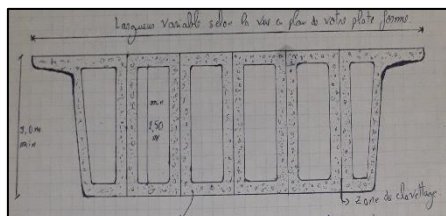 Longueur variable selon la vue en plan de votre plate forme
3,0 m
min
min
2,50
m
Zone de clavettage